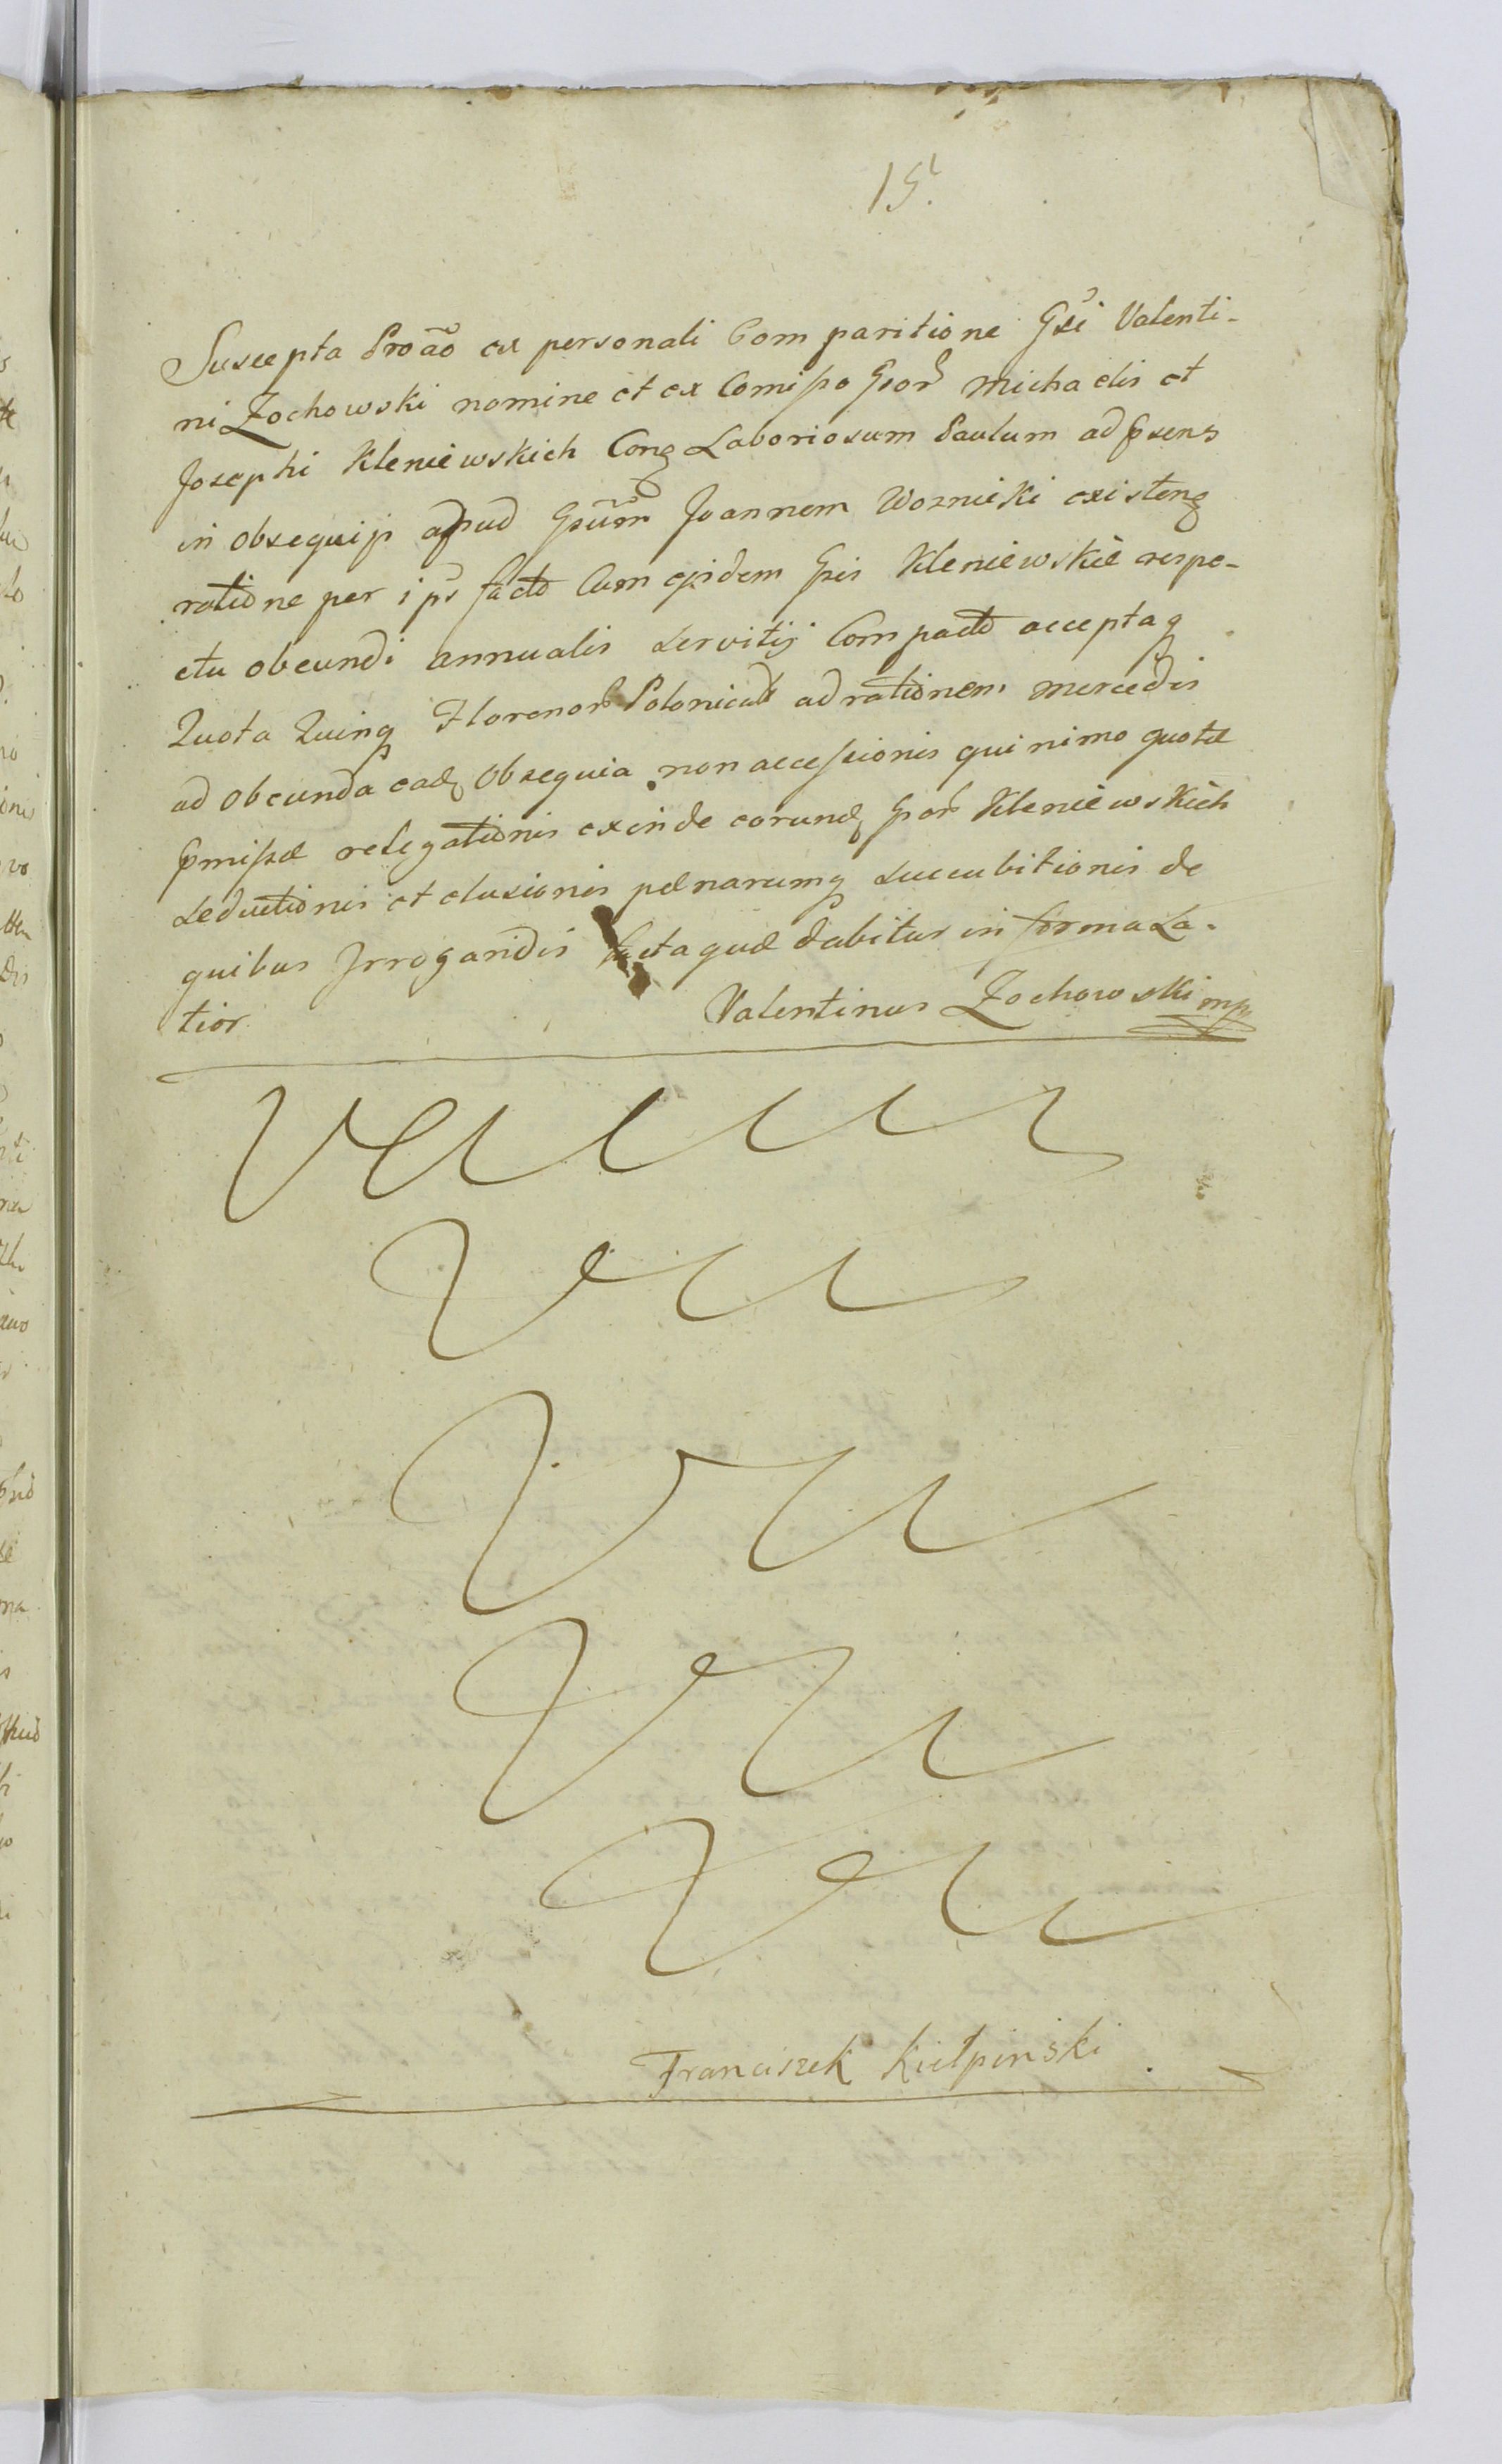 15.
Suscepta Proāō ex personali Comparitione Gsi Valenti-
ni Zochowski nomine et ex Comisso Gsor Michaelis et
Josephi Kleniewskich Conq Laboriosum Paulum ad psens
in obsequijs apud Gsum Joannem Woznicki existenq
ratione per ips facto Cum ejsdem Gsis Kleniewskie respe-
ctu obeundi annualis servitij Compacto acceptaq
Quota Quinq Florenor Polonical ad rationem mercedis
ad obeunda eadq Obsequia non accessionis quinimo quotæ
pmissæ relegationis exinde eorundq Gsor Kleniewskich
seductionis et elusionis pænarumq succubitionis de
quibus Irrogandis factaquæ dabitur in forma La-
tior
Valentinus Zochowski mp
Franciszek Kiełpinski